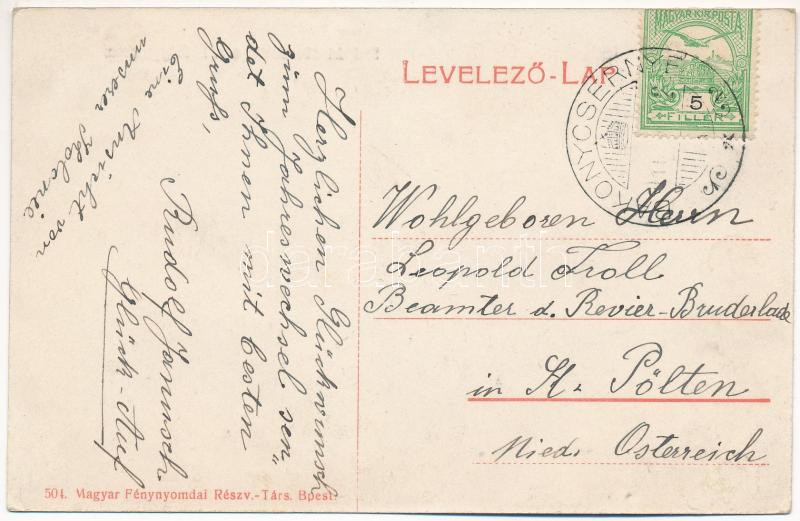 LEVELEZŐ-LAP
MAGYAR KIR. POSTA
5
FILLÉR
Wohlgeboren Herrn
Leopold Troll
Beamter d. Revier-Bruderlade
in St. Pölten
Nied. Österreich
Herzlichen Glückwunsch
zum Jahreswechsel sen„
det Ihnen mit besten
Gruß,
Rudolf Janusch.
Glück-Auf
Eine Ansicht von
unserer
504. Magyar Fénynyomdai Részv.-Társ. Bpest.
darabanth